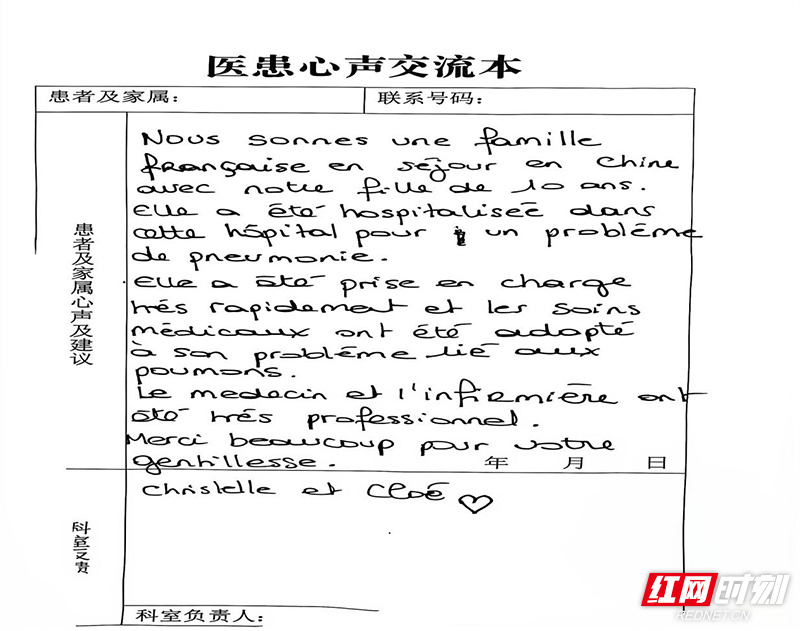 医患心声交流本
患者及家属：
联系号码：
Nous sommes une famille
française en séjour en Chine
avec notre fille de 10 ans.
Elle a été hospitalisée dans
cette hôpital pour un problème
de pneumonie.
Elle a été prise en charge
très rapidement et les soins
médicaux ont été adapté
à son problème lié aux
poumons.
Le medecin et l'infirmière ont
été très professionnel.
Merci beaucoup pour votre
gentillesse.
年 月 日
患者及家属心声及建议
Christelle et Cloé
科室
科室负责人：
红网时刻
REDNET.CN